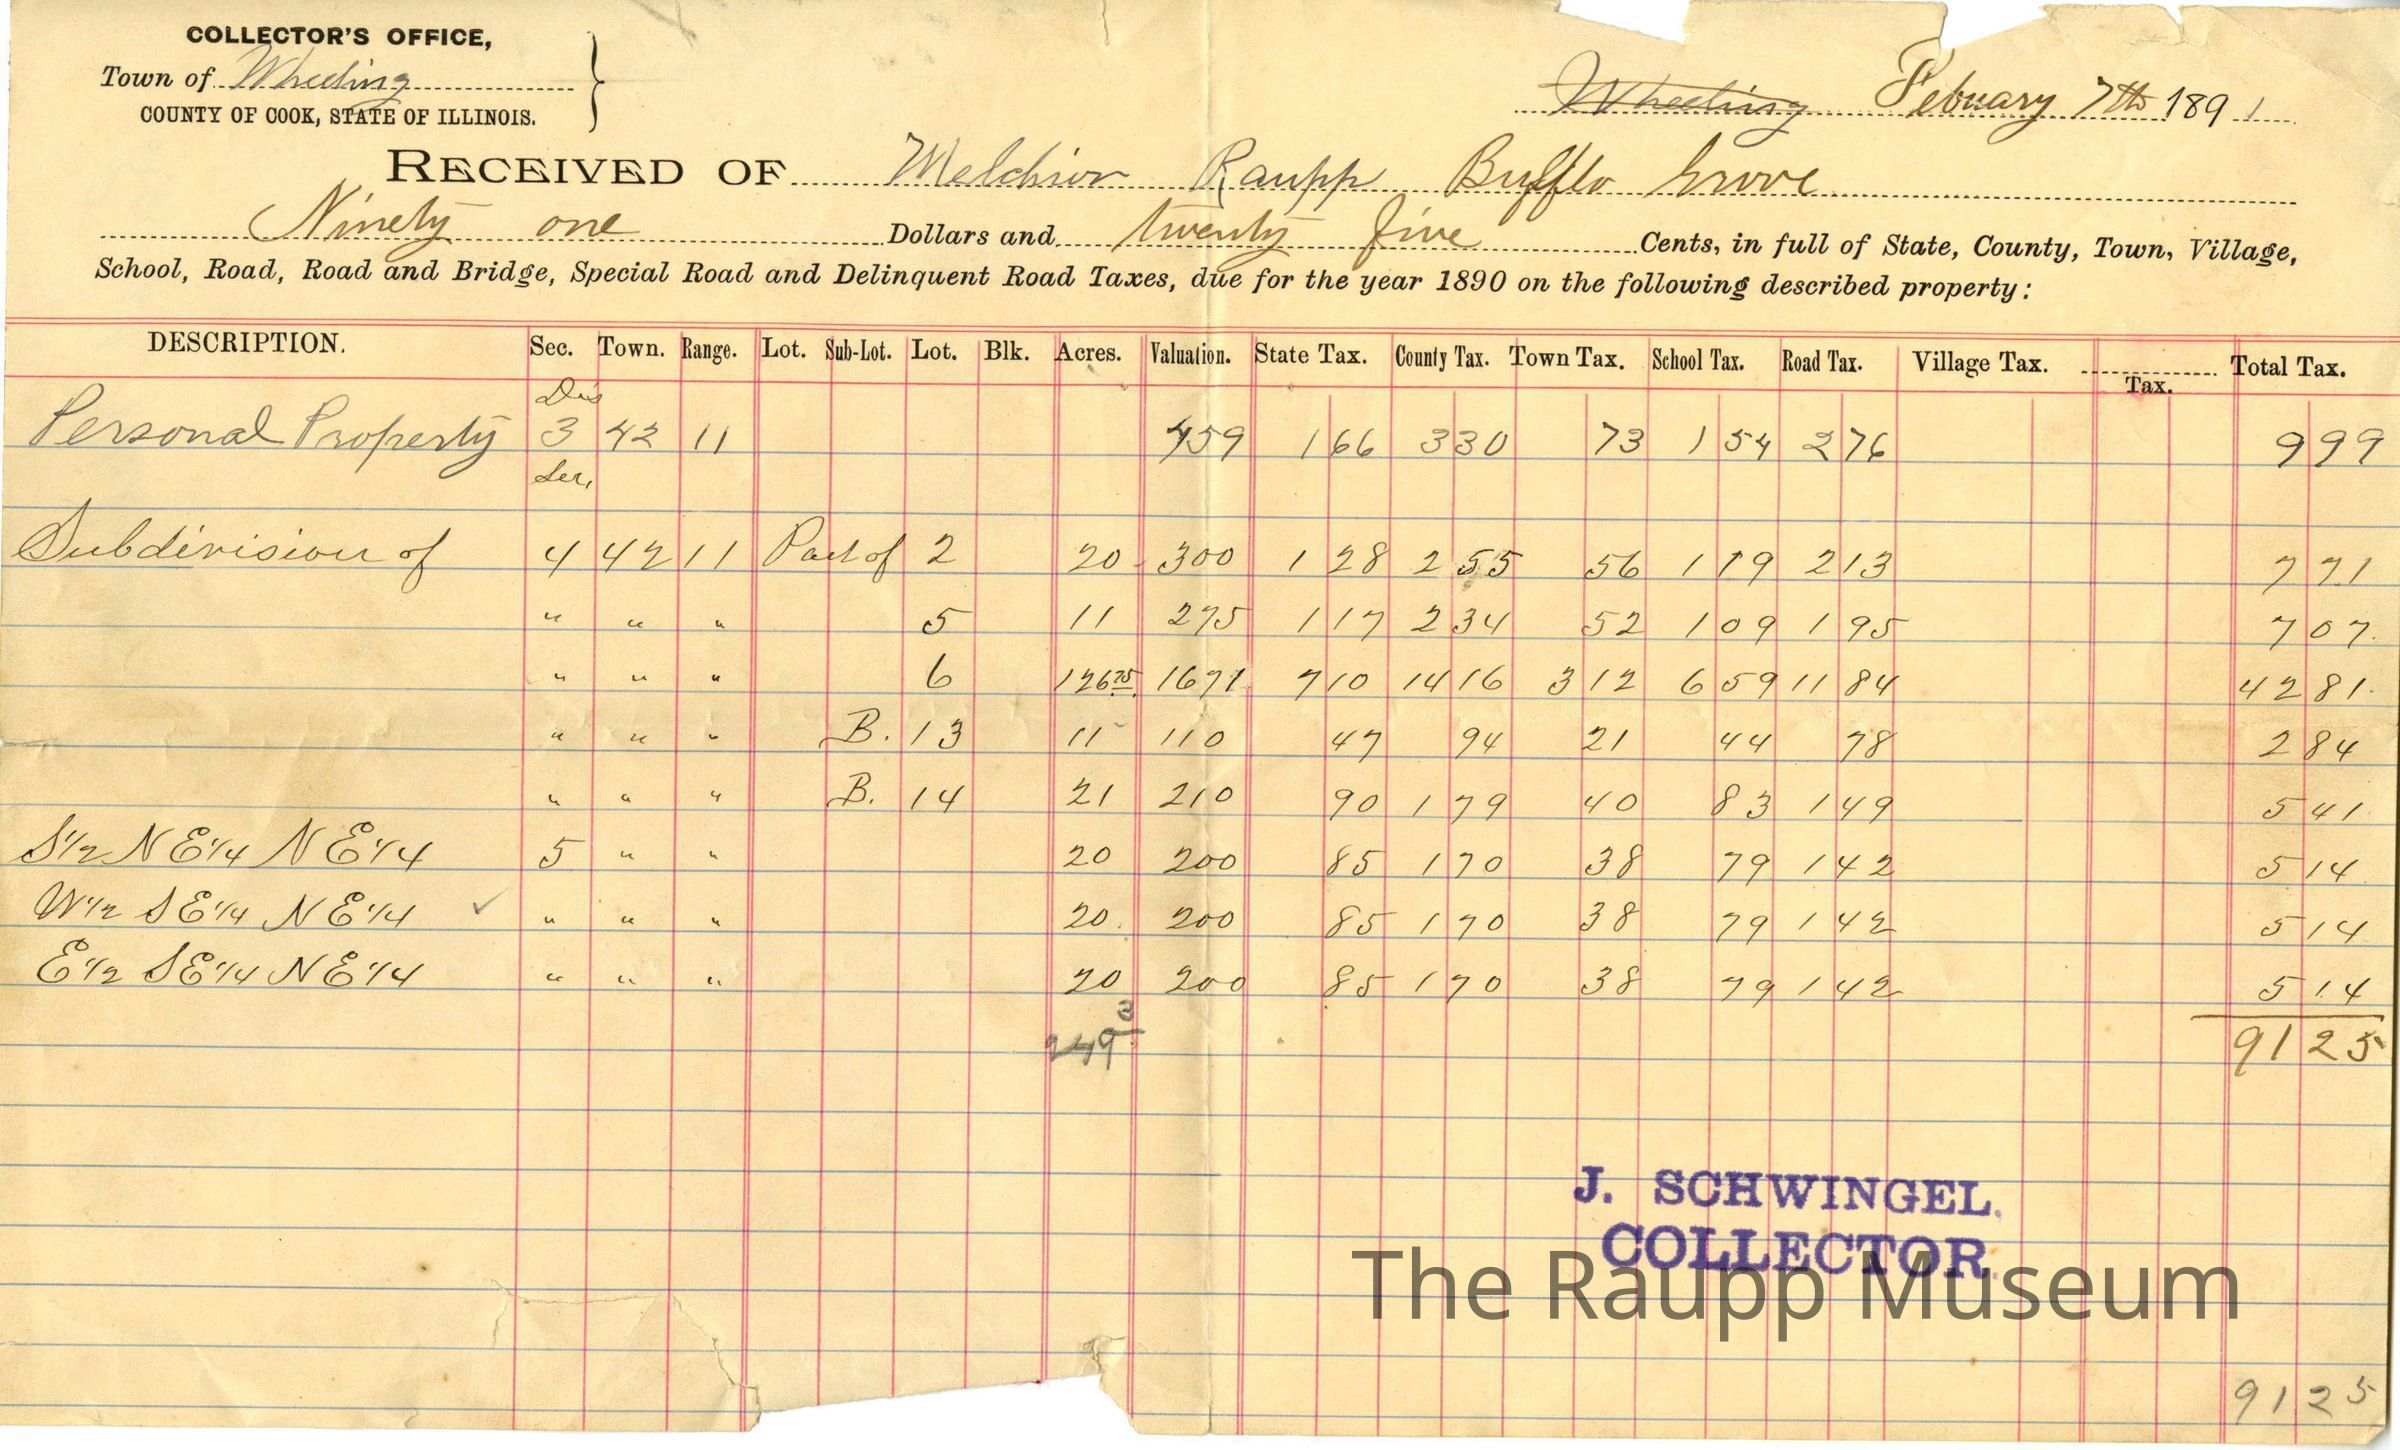 COLLECTOR'S OFFICE,
Town of Wheeling
COUNTY OF COOK, STATE OF ILLINOIS.
Wheeling Febuary 7th 1891
RECEIVED OF Melchior Raupp Bufflo Grove
Ninety one Dollars and twenty five Cents, in full of State, County, Town, Village,
School, Road, Road and Bridge, Special Road and Delinquent Road Taxes, due for the year 1890 on the following described property:
DESCRIPTION. Sec. Town. Range. Lot. Sub-Lot. Lot. Blk. Acres. Valuation. State Tax. County Tax. Town Tax. School Tax. Road Tax. Village Tax. Tax. Total Tax.
Dis
Personal Property 3 42 11 459 1 66 3 30 73 1 54 2 76 9 99
Sec.
Subdivision of 4 42 11 Part of 2 20 300 1 28 2 55 56 1 19 2 13 7 71
" " " 5 11 275 1 17 2 34 52 1 09 1 95 7 07
" " " 6 126 75 1671 7 10 14 16 3 12 6 59 11 84 42 81
" " " B. 13 11 110 47 94 21 44 78 2 84
" " " B. 14 21 210 90 1 79 40 83 1 49 5 41
S 1/2 N E 1/4 N E 1/4 5 " " 20 200 85 1 70 38 79 1 42 5 14
W 1/2 S E 1/4 N E 1/4 " " " 20 200 85 1 70 38 79 1 42 5 14
E 1/2 S E 1/4 N E 1/4 " " " 20 200 85 1 70 38 79 1 42 5 14
249 3 91 25
J. SCHWINGEL.
COLLECTOR.
The Raupp Museum
91 25